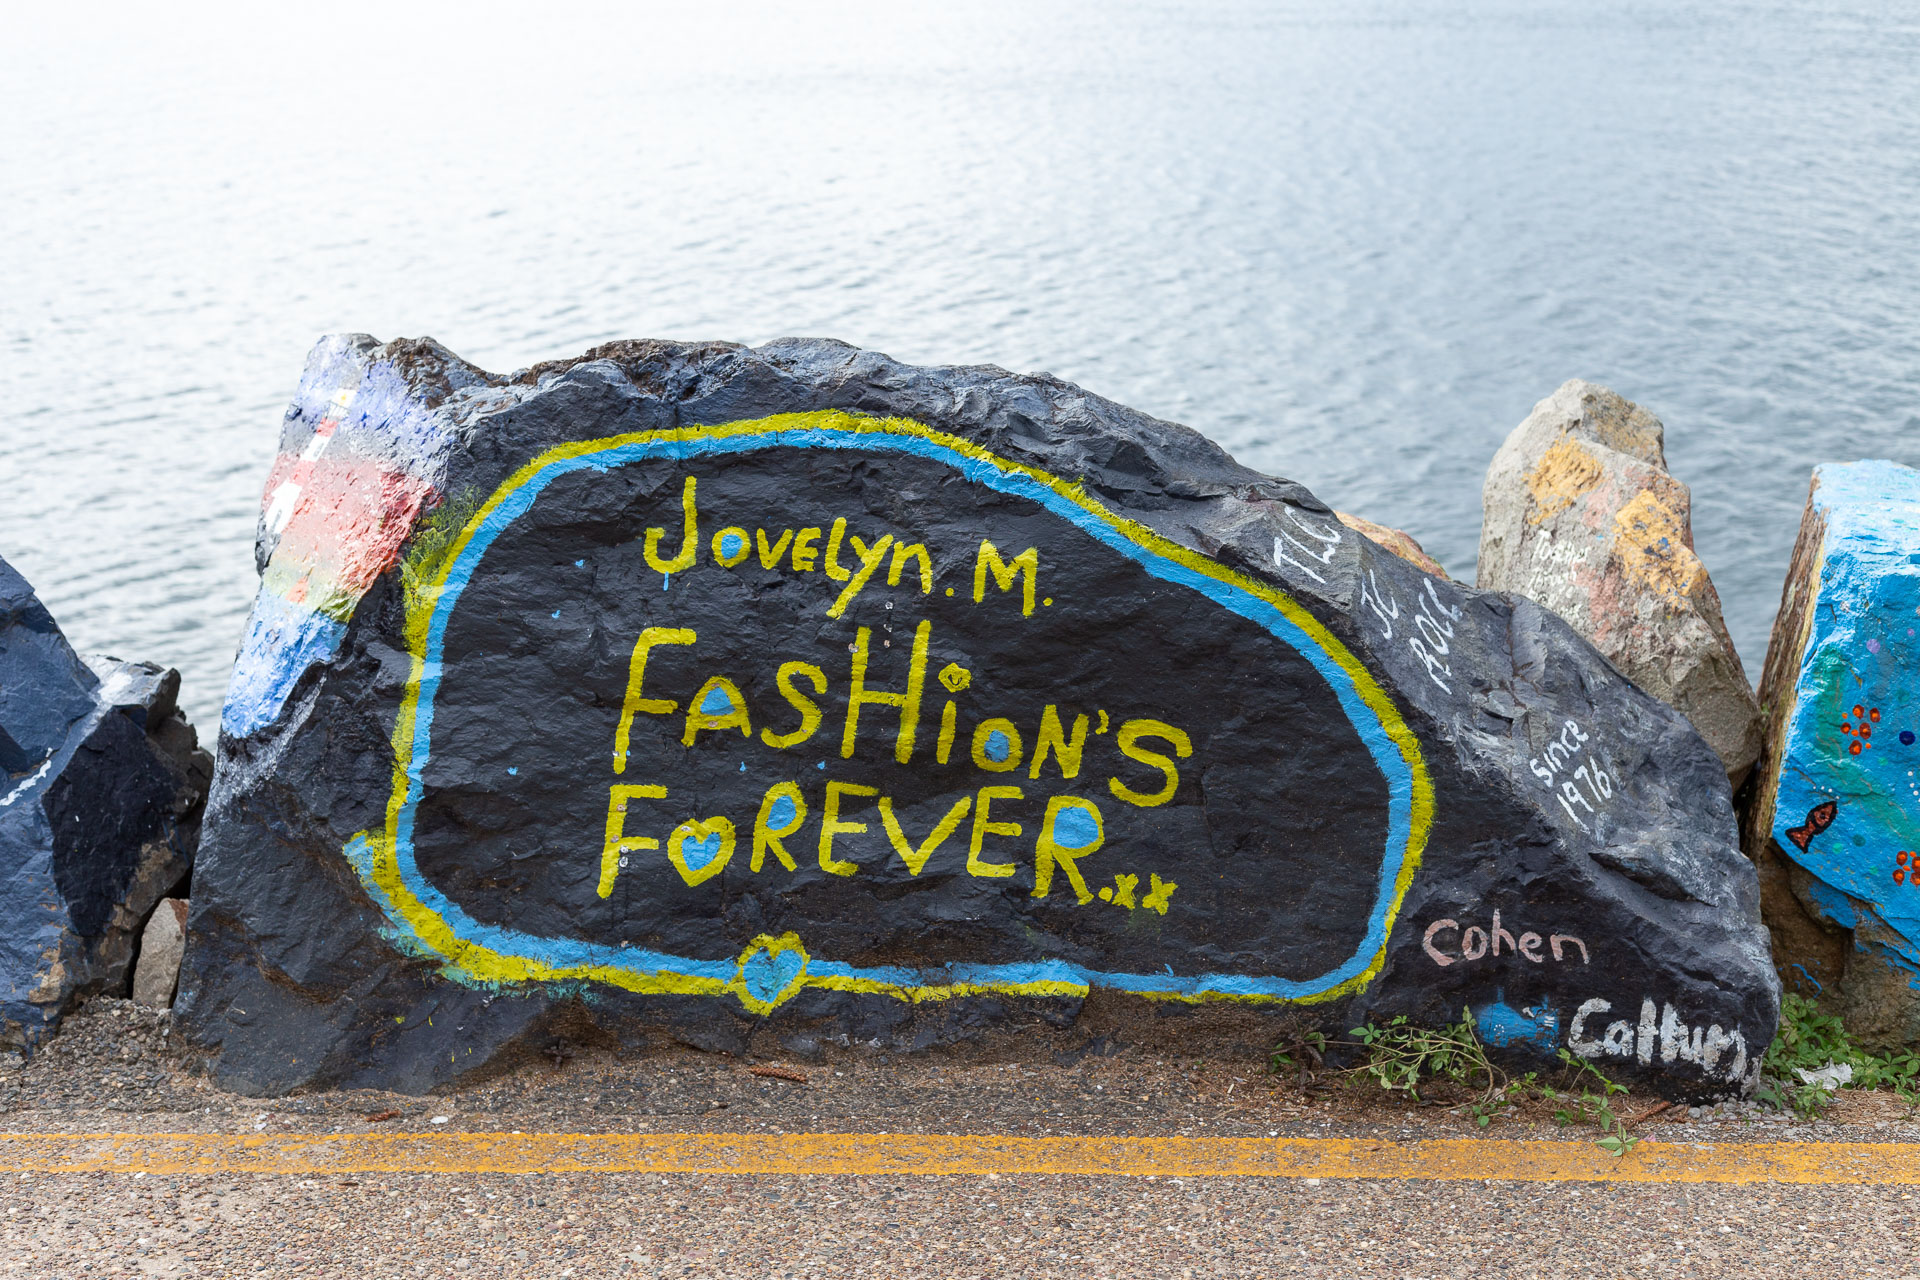 JOVELYN. M.
FASHiON'S
FOREVER.xx
TLC
JC
ROCC
since
1976
Cohen
Callum